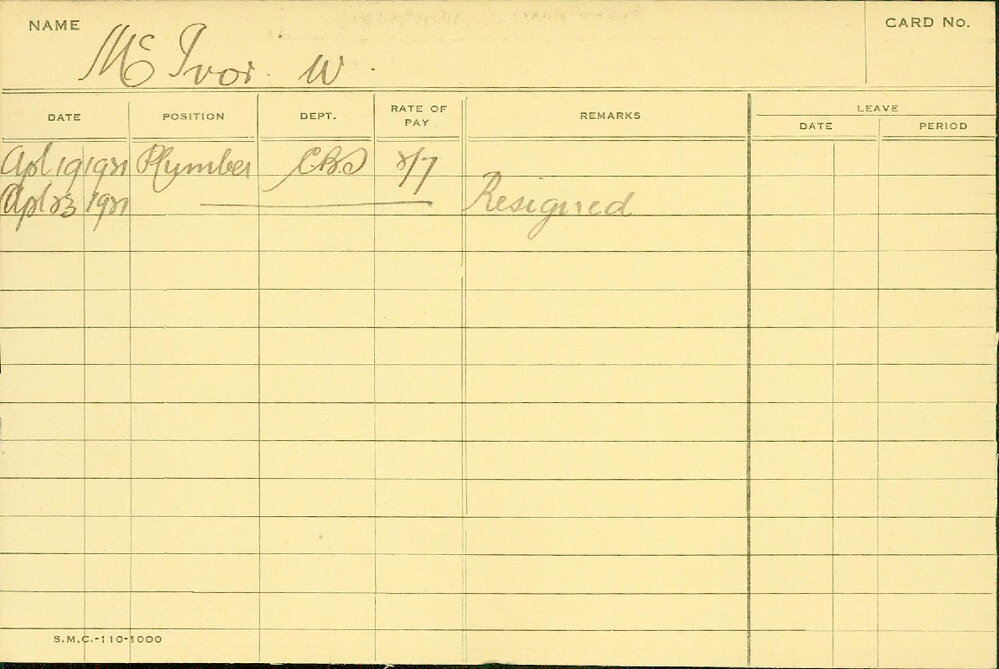 NAME Mc Ivor. W. CARD No.
DATE POSITION DEPT. RATE OF PAY REMARKS LEAVE
DATE PERIOD
Apl 19 1921 Plumber 2/7
Apl 23 1921 Resigned
S.M.C.-110-1000